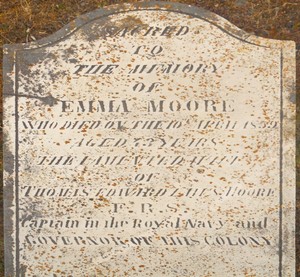 SACRED
TO
THE MEMORY
OF
EMMA MOORE
WHO DIED ON THE
AGED YEARS
THE LAMENTED WIFE
OF
THOMAS EDWARD LAWS MOORE
F.R.S.
Captain in the Royal Navy and
GOVERNOR OF THIS COLONY